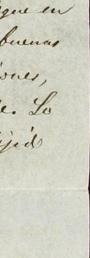 que en
buenas
iones,
e. Lo
ijió